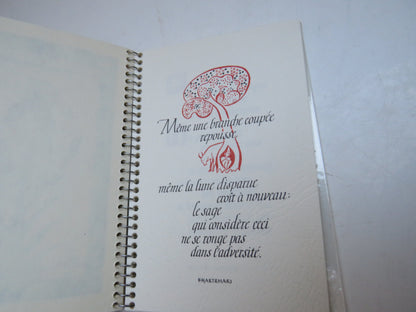 Même une branche coupée
repousse,
même la lune disparue
croît à nouveau:
le sage
qui considère ceci
ne se ronge pas
dans l'adversité.
BHARTRHARI